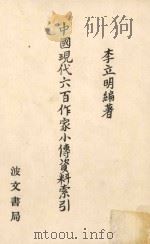 李立明編著
中國現代六百作家小傳資料索引
波文書局
www.duxiu.com